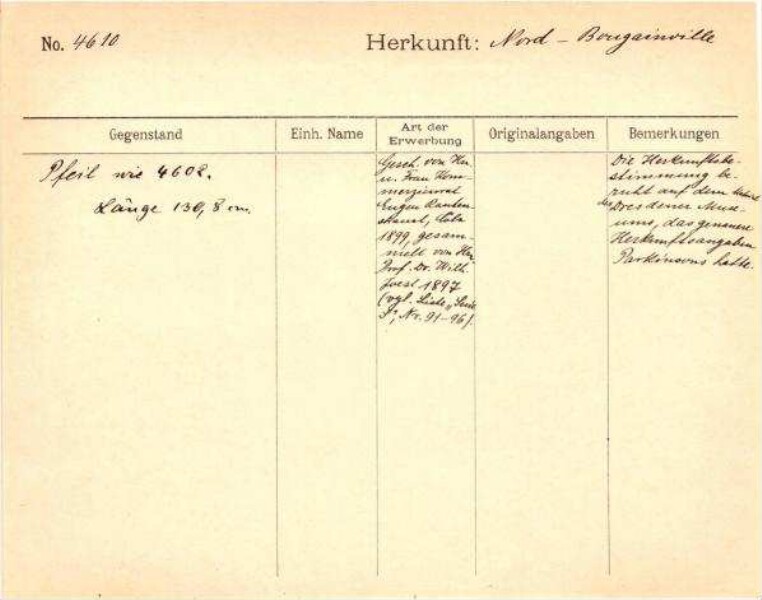 No. 4610
Herkunft: Nord - Bougainville
Gegenstand
Einh. Name
Art der
Erwerbung
Originalangaben
Bemerkungen
Pfeil wie 4602.
Länge 130,8 cm.
Gesch. von Herrn
u. Frau Kom-
merzienrat
Eugen Rauten-
strauch, Cöln
1899, gesam-
melt von Herrn
Prof. Dr. Wilh.
Joest 1897
(vgl. Liste "Serie
Nr. 91-96).
Die Herkunftsbe-
stimmung be-
ruht auf dem
des Dresdener Muse-
ums, das genauere
Herkunftsangaben
Parkinsons hatte.